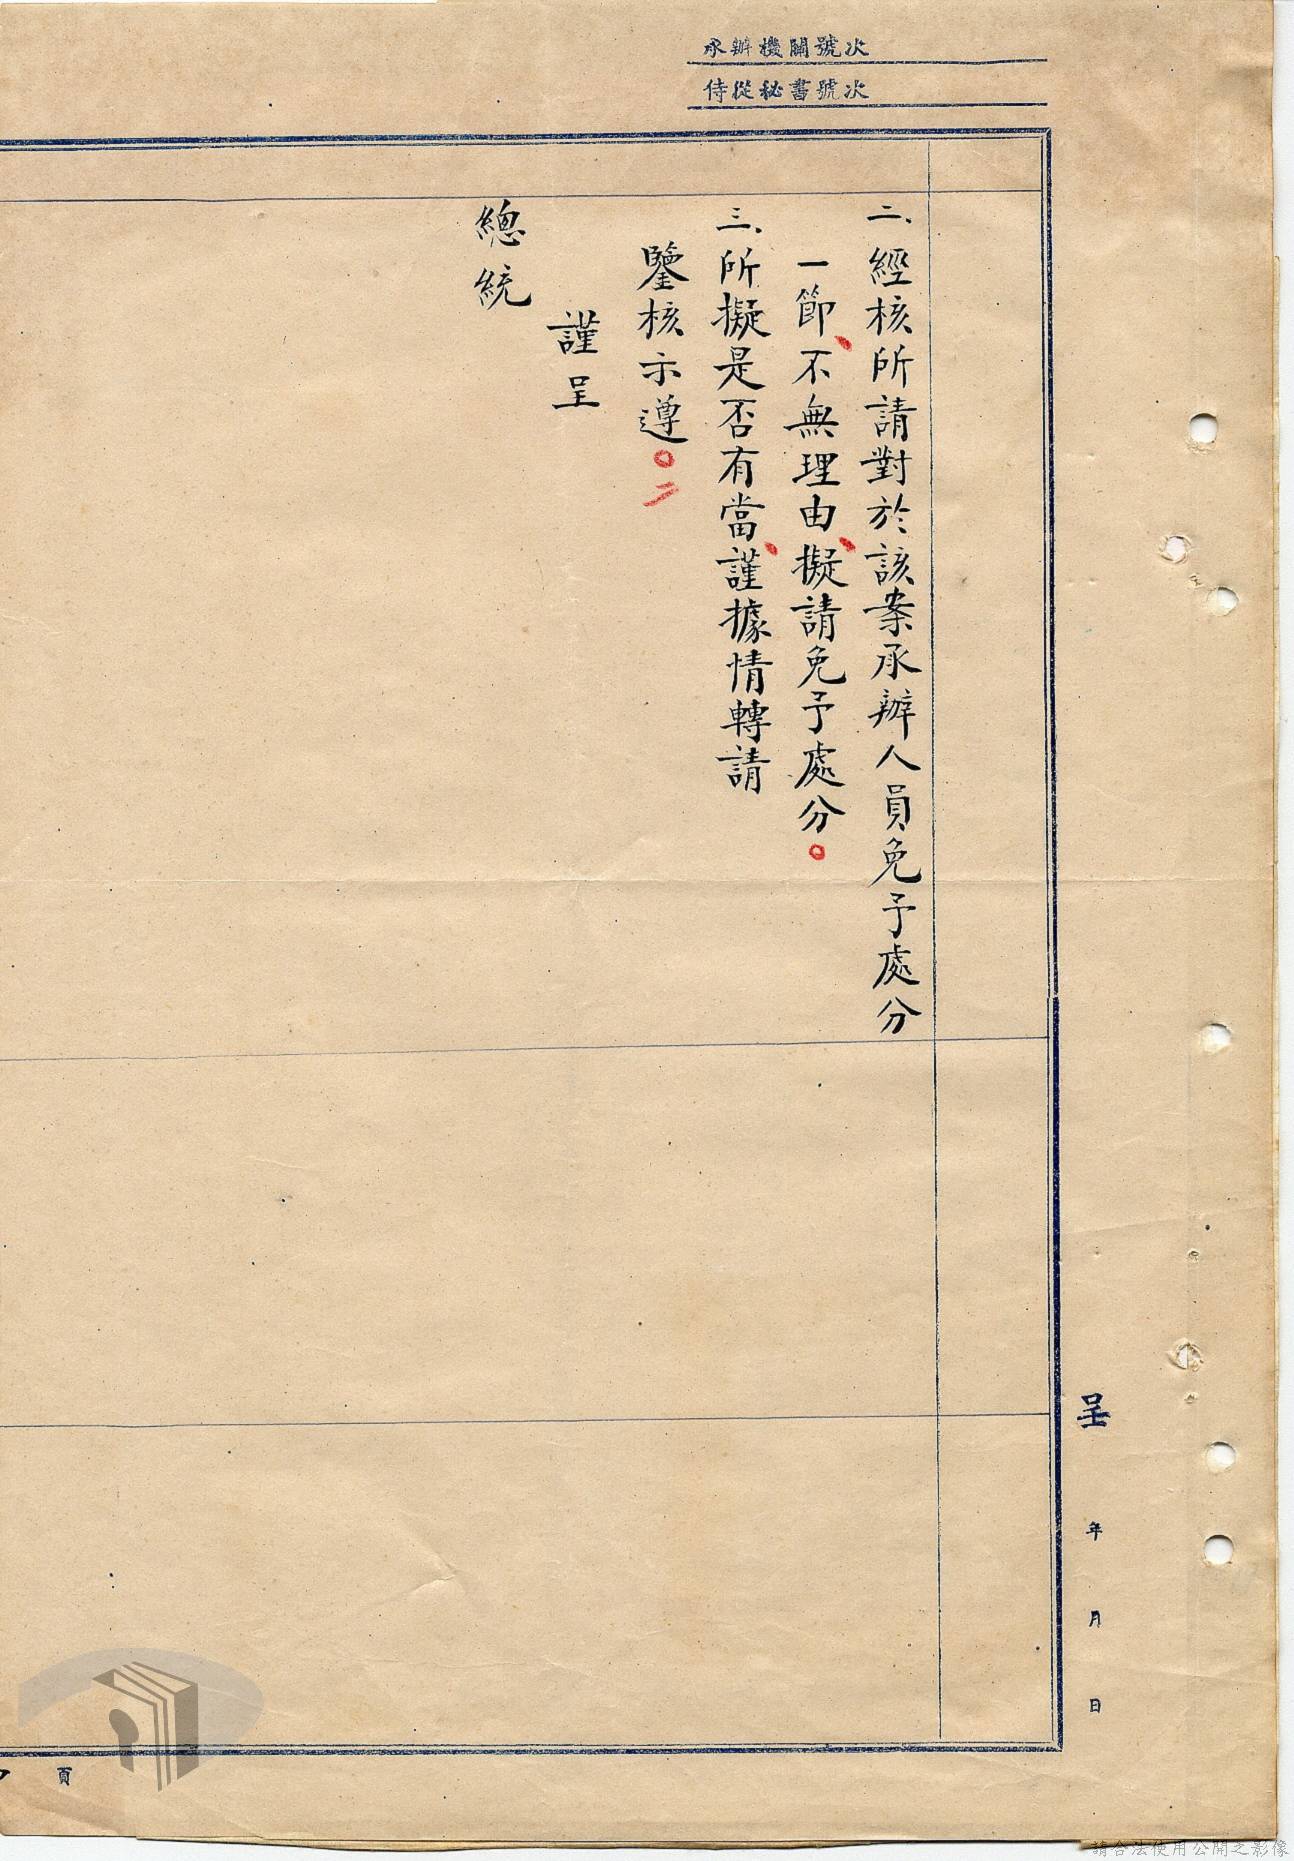 承辦機關號次
侍從秘書號次
二、經核所請對於該案承辦人員免予處分
一節、不無理由、擬請免予處分。
三、所擬是否有當、謹據情轉請
鑒核示遵。
謹呈
總統
呈 年 月 日
頁
請合法使用公開之影像